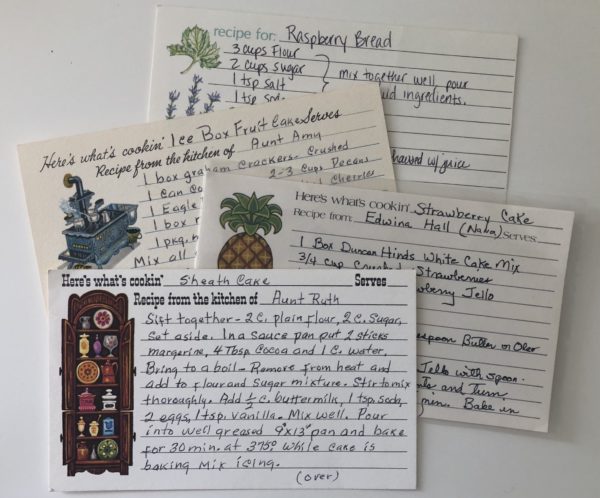 recipe for: Raspberry Bread
3 cups Flour
2 cups sugar
1 tsp salt
mix together well pour
1 tsp
ingredients.
w/ juice
Here's what's cookin' Ice Box Fruit Cake Serves
Recipe from the kitchen of Aunt Amy
1 box graham Crackers- Crushed
1 Can
2-3 Cups Pecans
1 Eagle
Cherries
1 box
1 pkg.
Mix all
Here's what's cookin' Strawberry Cake
Recipe from: Edwina Hall (Nana) Serves:
1 Box Duncan Hinds White Cake Mix
3/4 Cup Strawberries
Jello
Butter or Oleo
Jello with spoon.
and Turn
Bake in
Here's what's cookin' Sheath Cake Serves
Recipe from the kitchen of Aunt Ruth
Sift together - 2 C. plain flour, 2 C. Sugar,
set aside. In a sauce pan put 2 sticks
margerine, 4 Tbsp Cocoa and 1 C. water.
Bring to a boil - Remove from heat and
add to flour and Sugar mixture. Stir to mix
thoroughly. Add 1/2 c. buttermilk, 1 tsp. soda,
2 eggs, 1 tsp. vanilla. Mix well. Pour
into well greased 9"x13" pan and bake
for 30 min. at 375° while cake is
baking mix icing.
(over)